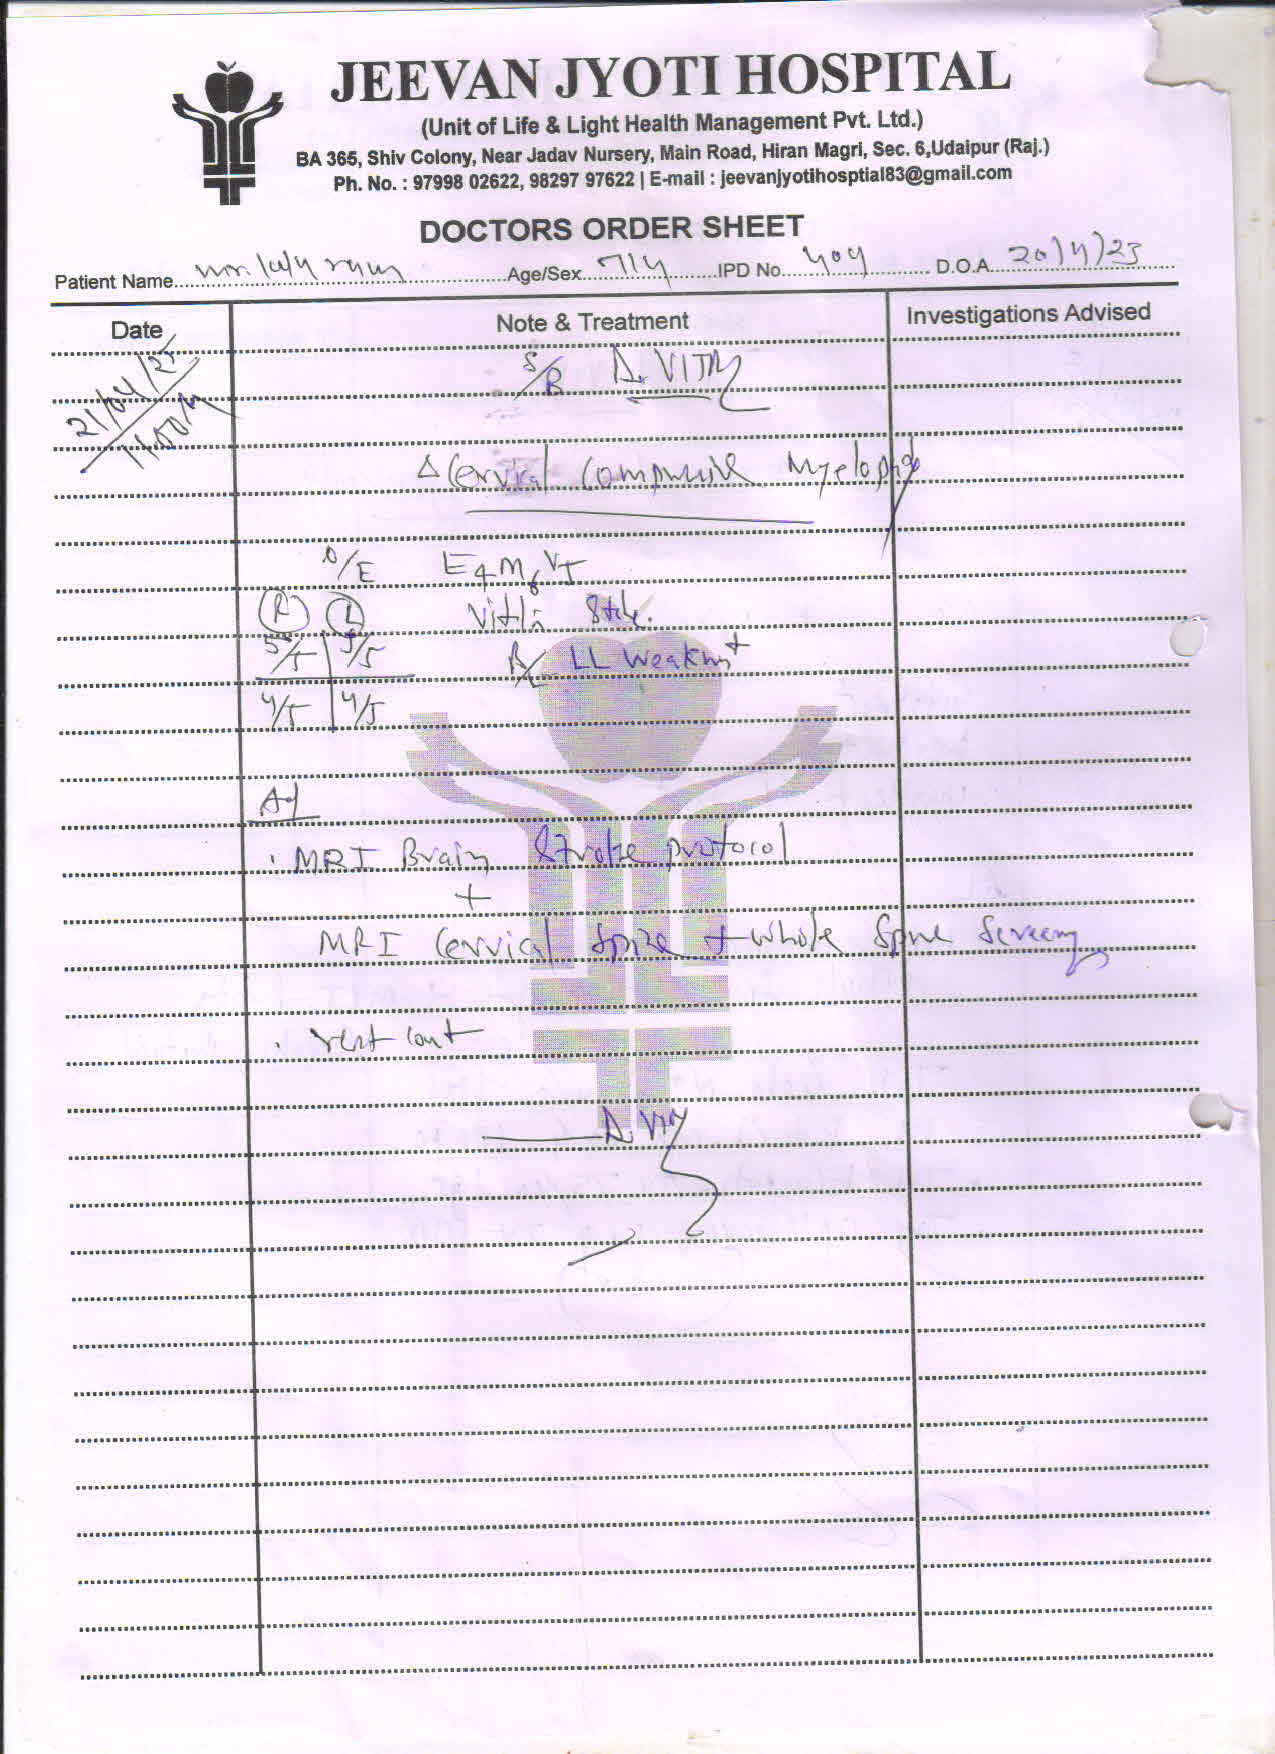 JEEVAN JYOTI HOSPITAL
(Unit of Life & Light Health Management Pvt. Ltd.)
BA 365, Shiv Colony, Near Jadav Nursery, Main Road, Hiran Magri, Sec. 6,Udaipur (Raj.)
Ph. No. : 97998 02622, 98297 97622 | E-mail : jeevanjyotihosptial83@gmail.com
DOCTORS ORDER SHEET
Patient Name Age/Sex IPD No. 404 D.O.A. 20/4/23
Date Note & Treatment Investigations Advised
21/04/23 S/B
Δ Cervical Compressive Myelopathy
O/E E4M6VT
(R) (L)
5/5 5/5 LL Weakness +
4/5 4/5
Ad
. MRI Brain Stroke protocol
+
MRI Cervical Spine + whole Spine Screening
. rest cont